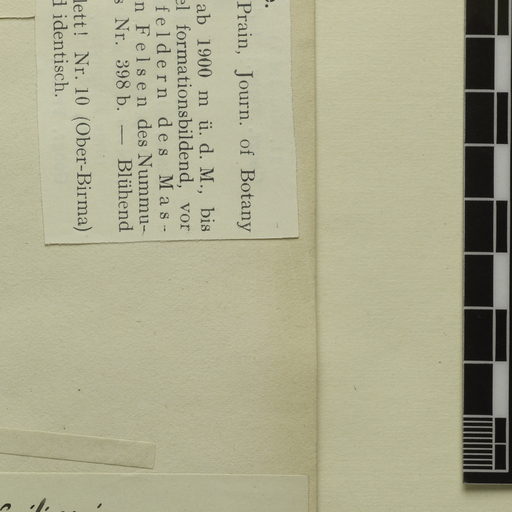 Prain, Journ. of Botany
ab 1900 m ü. d. M., bis
el formationsbildend, vor
feldern des Mas-
n Felsen des Nummu-
s Nr. 398 b. — Blühend
lett! Nr. 10 (Ober-Birma)
d identisch.